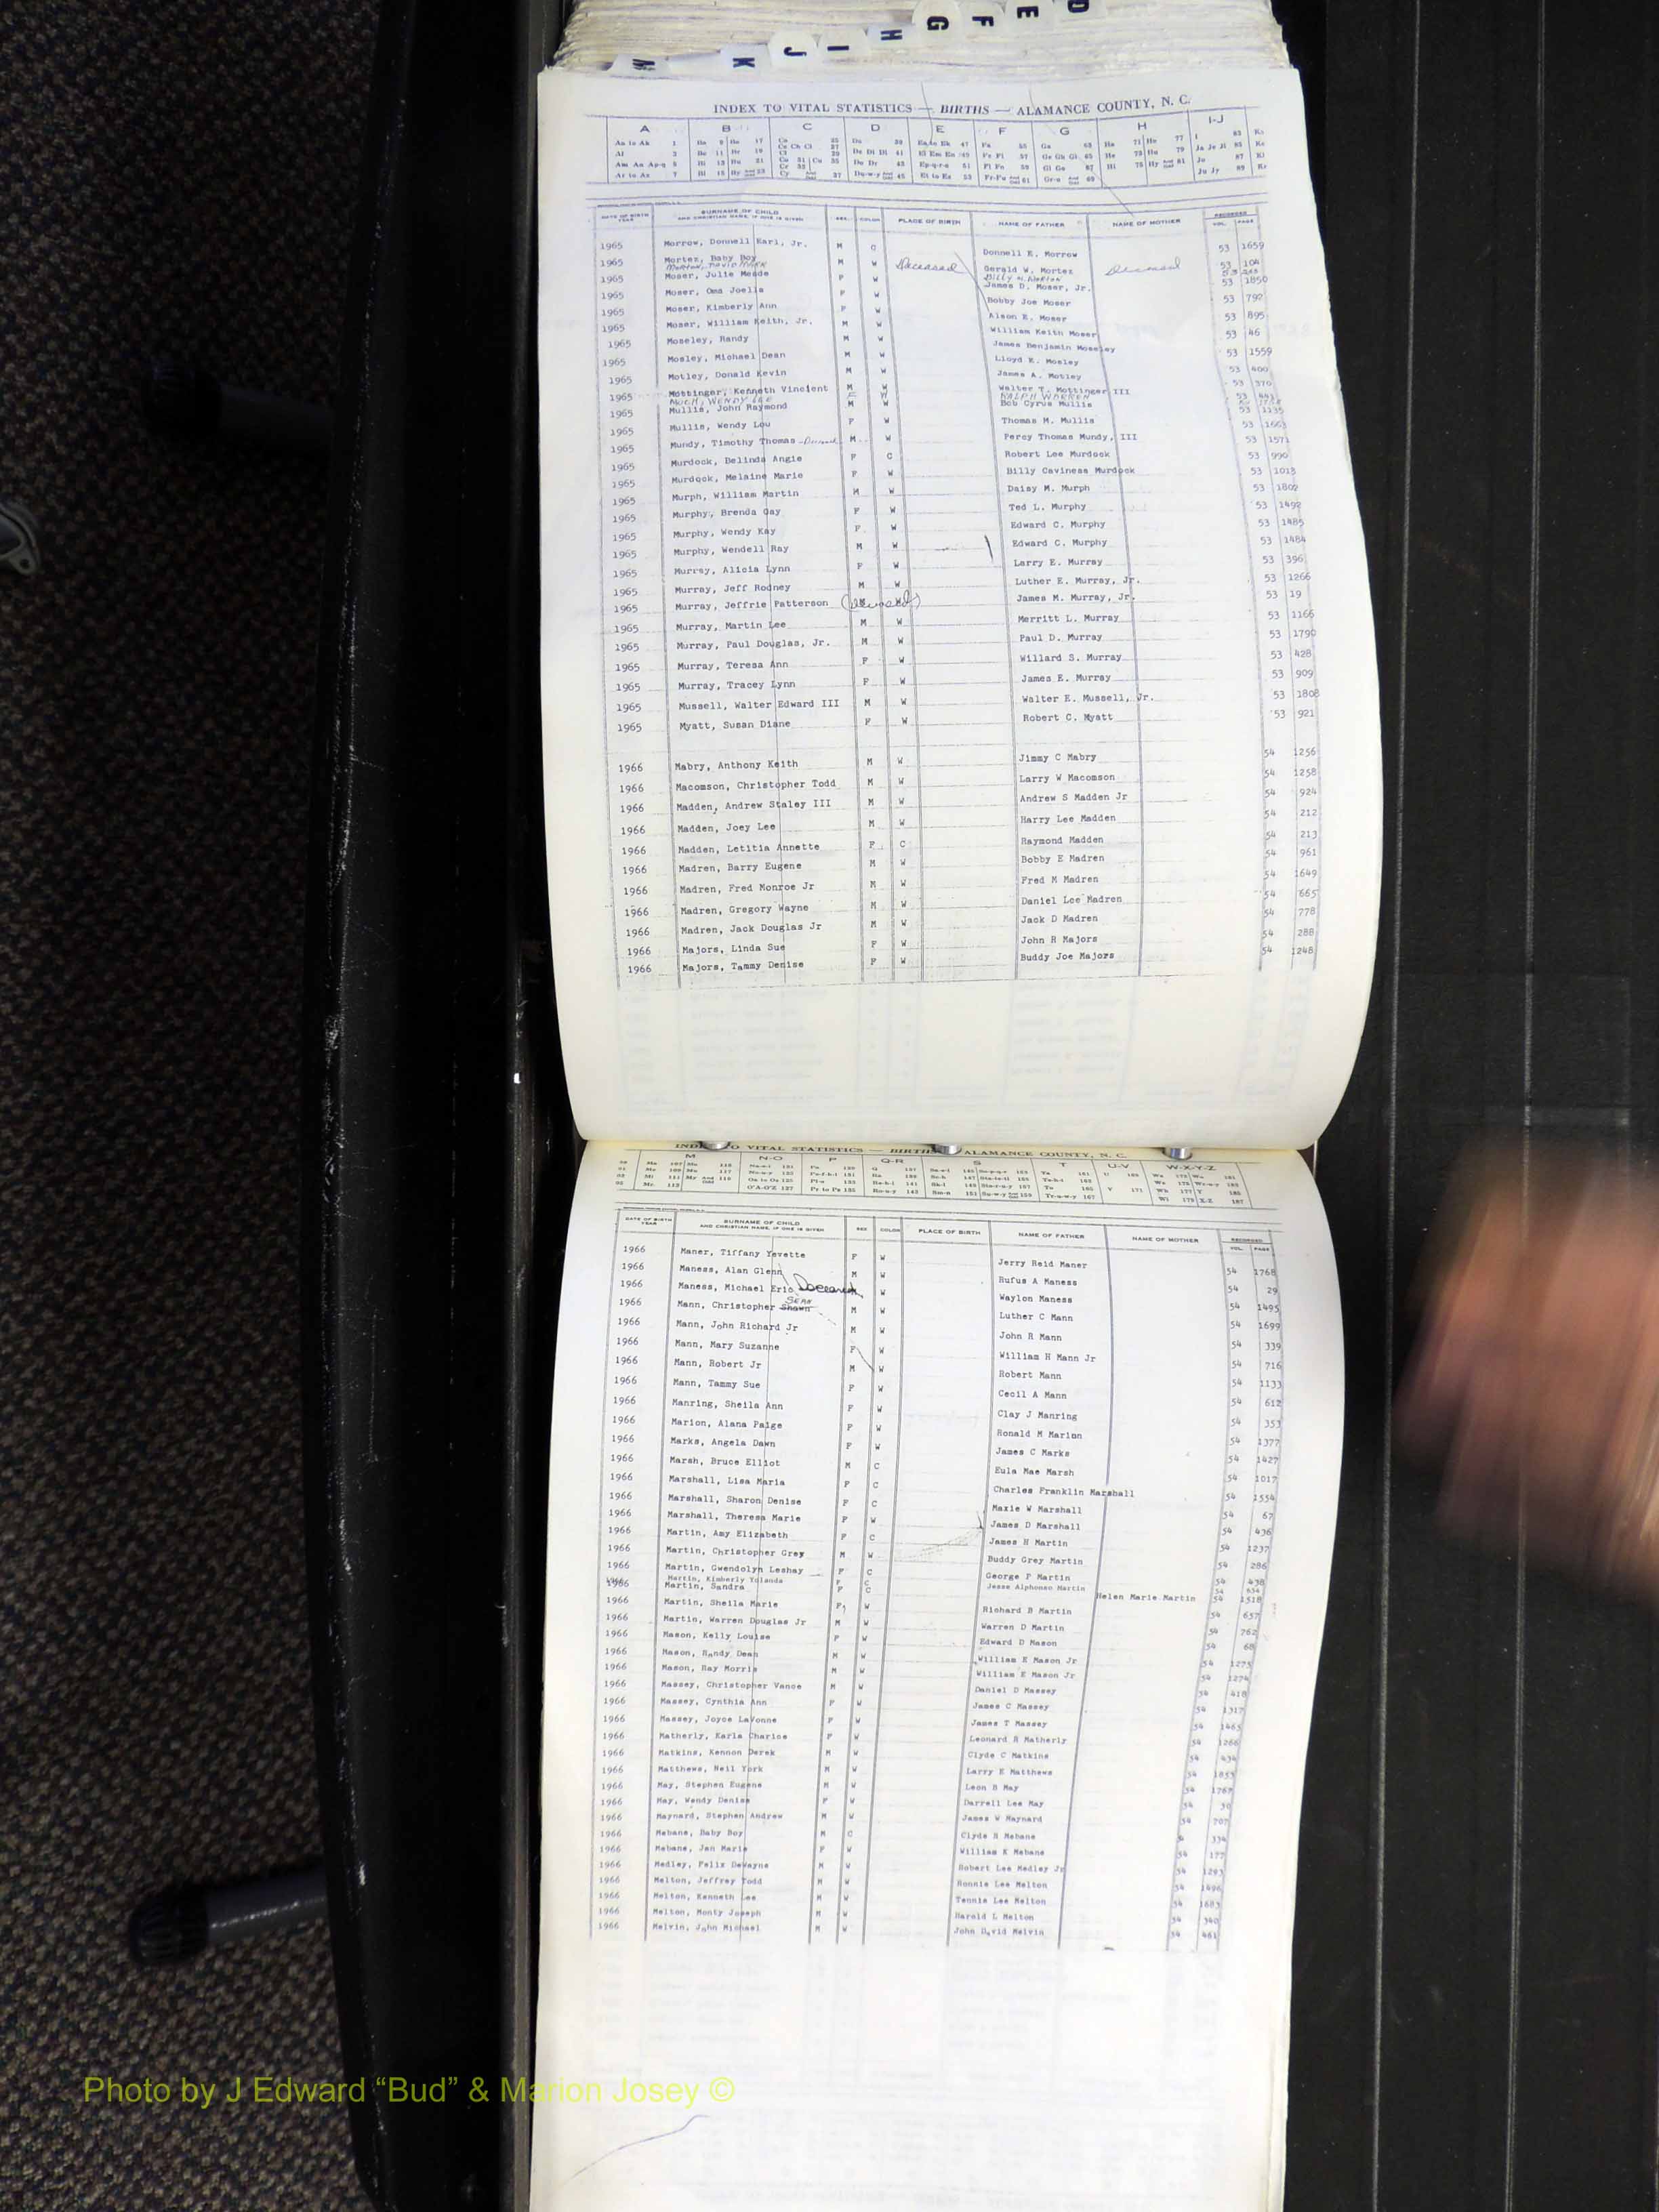 D
E
F
G
H
I
J
K
M
INDEX TO VITAL STATISTICS — BIRTHS — ALAMANCE COUNTY, N. C.
A B C D E F G H I-J
DATE OF BIRTH YEAR SURNAME OF CHILD AND CHRISTIAN NAME, IF ONE IS GIVEN SEX COLOR PLACE OF BIRTH NAME OF FATHER NAME OF MOTHER RECORDED VOL. PAGE
1965 Morrow, Donnell Earl, Jr. M C Donnell E. Morrow 53 1659
1965 Mortez, Baby Boy M W Deceased Gerald W. Mortez Deceased 53 104
MORTON, DAVID MARK BILLY N. MORTON
1965 Moser, Julie Meade F W James D. Moser, Jr. 53 1850
1965 Moser, Oma Joella F W Bobby Joe Moser 53 792
1965 Moser, Kimberly Ann F W Alson E. Moser 53 895
1965 Moser, William Keith, Jr. M W William Keith Moser 53 46
1965 Moseley, Randy M W James Benjamin Moseley 53 1559
1965 Mosley, Michael Dean M W Lloyd E. Mosley 53 400
1965 Motley, Donald Kevin M W James A. Motley 53 370
1965 Mottinger, Kenneth Vincient M W Walter T. Mottinger III 53
WENDY LEE F W RALPH WARREN
1965 Mullis, John Raymond M W Bob Cyrus Mullis 53 1135
1965 Mullis, Wendy Lou F W Thomas M. Mullis 53 1663
1965 Mundy, Timothy Thomas M W Percy Thomas Mundy, III 53 1571
1965 Murdock, Belinda Angie F C Robert Lee Murdock 53 990
1965 Murdock, Melaine Marie F W Billy Caviness Murdock 53 1013
1965 Murph, William Martin M W Daisy M. Murph 53 1802
1965 Murphy, Brenda Gay F W Ted L. Murphy 53 1492
1965 Murphy, Wendy Kay F W Edward C. Murphy 53 1485
1965 Murphy, Wendell Ray M W Edward C. Murphy 53 1484
1965 Murray, Alicia Lynn F W Larry E. Murray 53 396
1965 Murray, Jeff Rodney M W Luther E. Murray, Jr. 53 1266
1965 Murray, Jeffrie Patterson (deceased) M W James M. Murray, Jr. 53 19
1965 Murray, Martin Lee M W Merritt L. Murray 53 1166
1965 Murray, Paul Douglas, Jr. M W Paul D. Murray 53 1790
1965 Murray, Teresa Ann F W Willard S. Murray 53 428
1965 Murray, Tracey Lynn F W James E. Murray 53 909
1965 Mussell, Walter Edward III M W Walter E. Mussell, Jr. 53 1808
1965 Myatt, Susan Diane F W Robert C. Myatt 53 921
1966 Mabry, Anthony Keith M W Jimmy C Mabry 54 1256
1966 Macomson, Christopher Todd M W Larry W Macomson 54 1258
1966 Madden, Andrew Staley III M W Andrew S Madden Jr 54 924
1966 Madden, Joey Lee M W Harry Lee Madden 54 212
1966 Madden, Letitia Annette F C Raymond Madden 54 213
1966 Madren, Barry Eugene M W Bobby E Madren 54 961
1966 Madren, Fred Monroe Jr M W Fred M Madren 54 1649
1966 Madren, Gregory Wayne M W Daniel Lee Madren 54 665
1966 Madren, Jack Douglas Jr M W Jack D Madren 54 778
1966 Majors, Linda Sue F W John R Majors 54 288
1966 Majors, Tammy Denise F W Buddy Joe Majors 54 1248
INDEX TO VITAL STATISTICS — BIRTHS — ALAMANCE COUNTY, N. C.
M N-O P Q-R S T U-V W-X-Y-Z
DATE OF BIRTH YEAR SURNAME OF CHILD AND CHRISTIAN NAME, IF ONE IS GIVEN SEX COLOR PLACE OF BIRTH NAME OF FATHER NAME OF MOTHER RECORDED VOL. PAGE
1966 Maner, Tiffany Yevette F W Jerry Reid Maner 54 1768
1966 Maness, Alan Glenn M W Rufus A Maness 54 29
1966 Maness, Michael Eric Deceased W Waylon Maness 54 1495
1966 Mann, Christopher Shawn SEAN M W Luther C Mann 54 1699
1966 Mann, John Richard Jr M W John R Mann 54 339
1966 Mann, Mary Suzanne F W William H Mann Jr 54 716
1966 Mann, Robert Jr M W Robert Mann 54 1133
1966 Mann, Tammy Sue F W Cecil A Mann 54 612
1966 Manring, Sheila Ann F W Clay J Manring 54 353
1966 Marion, Alana Paige F W Ronald M Marion 54 1377
1966 Marks, Angela Dawn F W James C Marks 54 1427
1966 Marsh, Bruce Elliot M C Eula Mae Marsh 54 1017
1966 Marshall, Lisa Maria F C Charles Franklin Marshall 54 1554
1966 Marshall, Sharon Denise F C Maxie W Marshall 54 67
1966 Marshall, Theresa Marie F W James D Marshall 54 436
1966 Martin, Amy Elizabeth F C James H Martin 54 1237
1966 Martin, Christopher Grey M W Buddy Grey Martin 54 286
1966 Martin, Gwendolyn Leshay F C George P Martin 54 438
1966 Martin, Kimberly Yolanda F C Jesse Alphonso Martin 54 654
1966 Martin, Sandra F C Helen Marie Martin 54 1518
1966 Martin, Sheila Marie F W Richard B Martin 54 657
1966 Martin, Warren Douglas Jr M W Warren D Martin 54 762
1966 Mason, Kelly Louise F W Edward D Mason 54 68
1966 Mason, Randy Dean M W William E Mason Jr 54 1275
1966 Mason, Ray Morris M W William E Mason Jr 54 1274
1966 Massey, Christopher Vance M W Daniel D Massey 54 418
1966 Massey, Cynthia Ann F W James C Massey 54 1317
1966 Massey, Joyce LaVonne F W James T Massey 54 1465
1966 Matherly, Karla Charice F W Leonard R Matherly 54 1266
1966 Matkins, Kennon Derek M W Clyde C Matkins 54 434
1966 Matthews, Neil York M W Larry E Matthews 54 1853
1966 May, Stephen Eugene M W Leon B May 54 1767
1966 May, Wendy Denise F W Darrell Lee May 54 30
1966 Maynard, Stephen Andrew M W James W Maynard 54 707
1966 Mebane, Baby Boy M C Clyde R Mebane 54 334
1966 Mebane, Jan Marie F W William K Mebane 54 177
1966 Medley, Felix DeWayne M W Robert Lee Medley Jr 54 1293
1966 Melton, Jeffrey Todd M W Ronnie Lee Melton 54 1496
1966 Melton, Kenneth Lee M W Tennie Lee Melton 54 1683
1966 Melton, Monty Joseph M W Harold L Melton 54 340
1966 Melvin, John Michael M W John David Melvin 54 461
Photo by J Edward “Bud” & Marion Josey ©